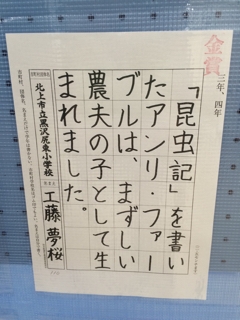 金賞
三年、四年
「昆虫記」を書い
たアンリ・ファー
ブルは、まずしい
農夫の子として生
まれました。
北上市立黒沢尻東小学校
工藤夢桜